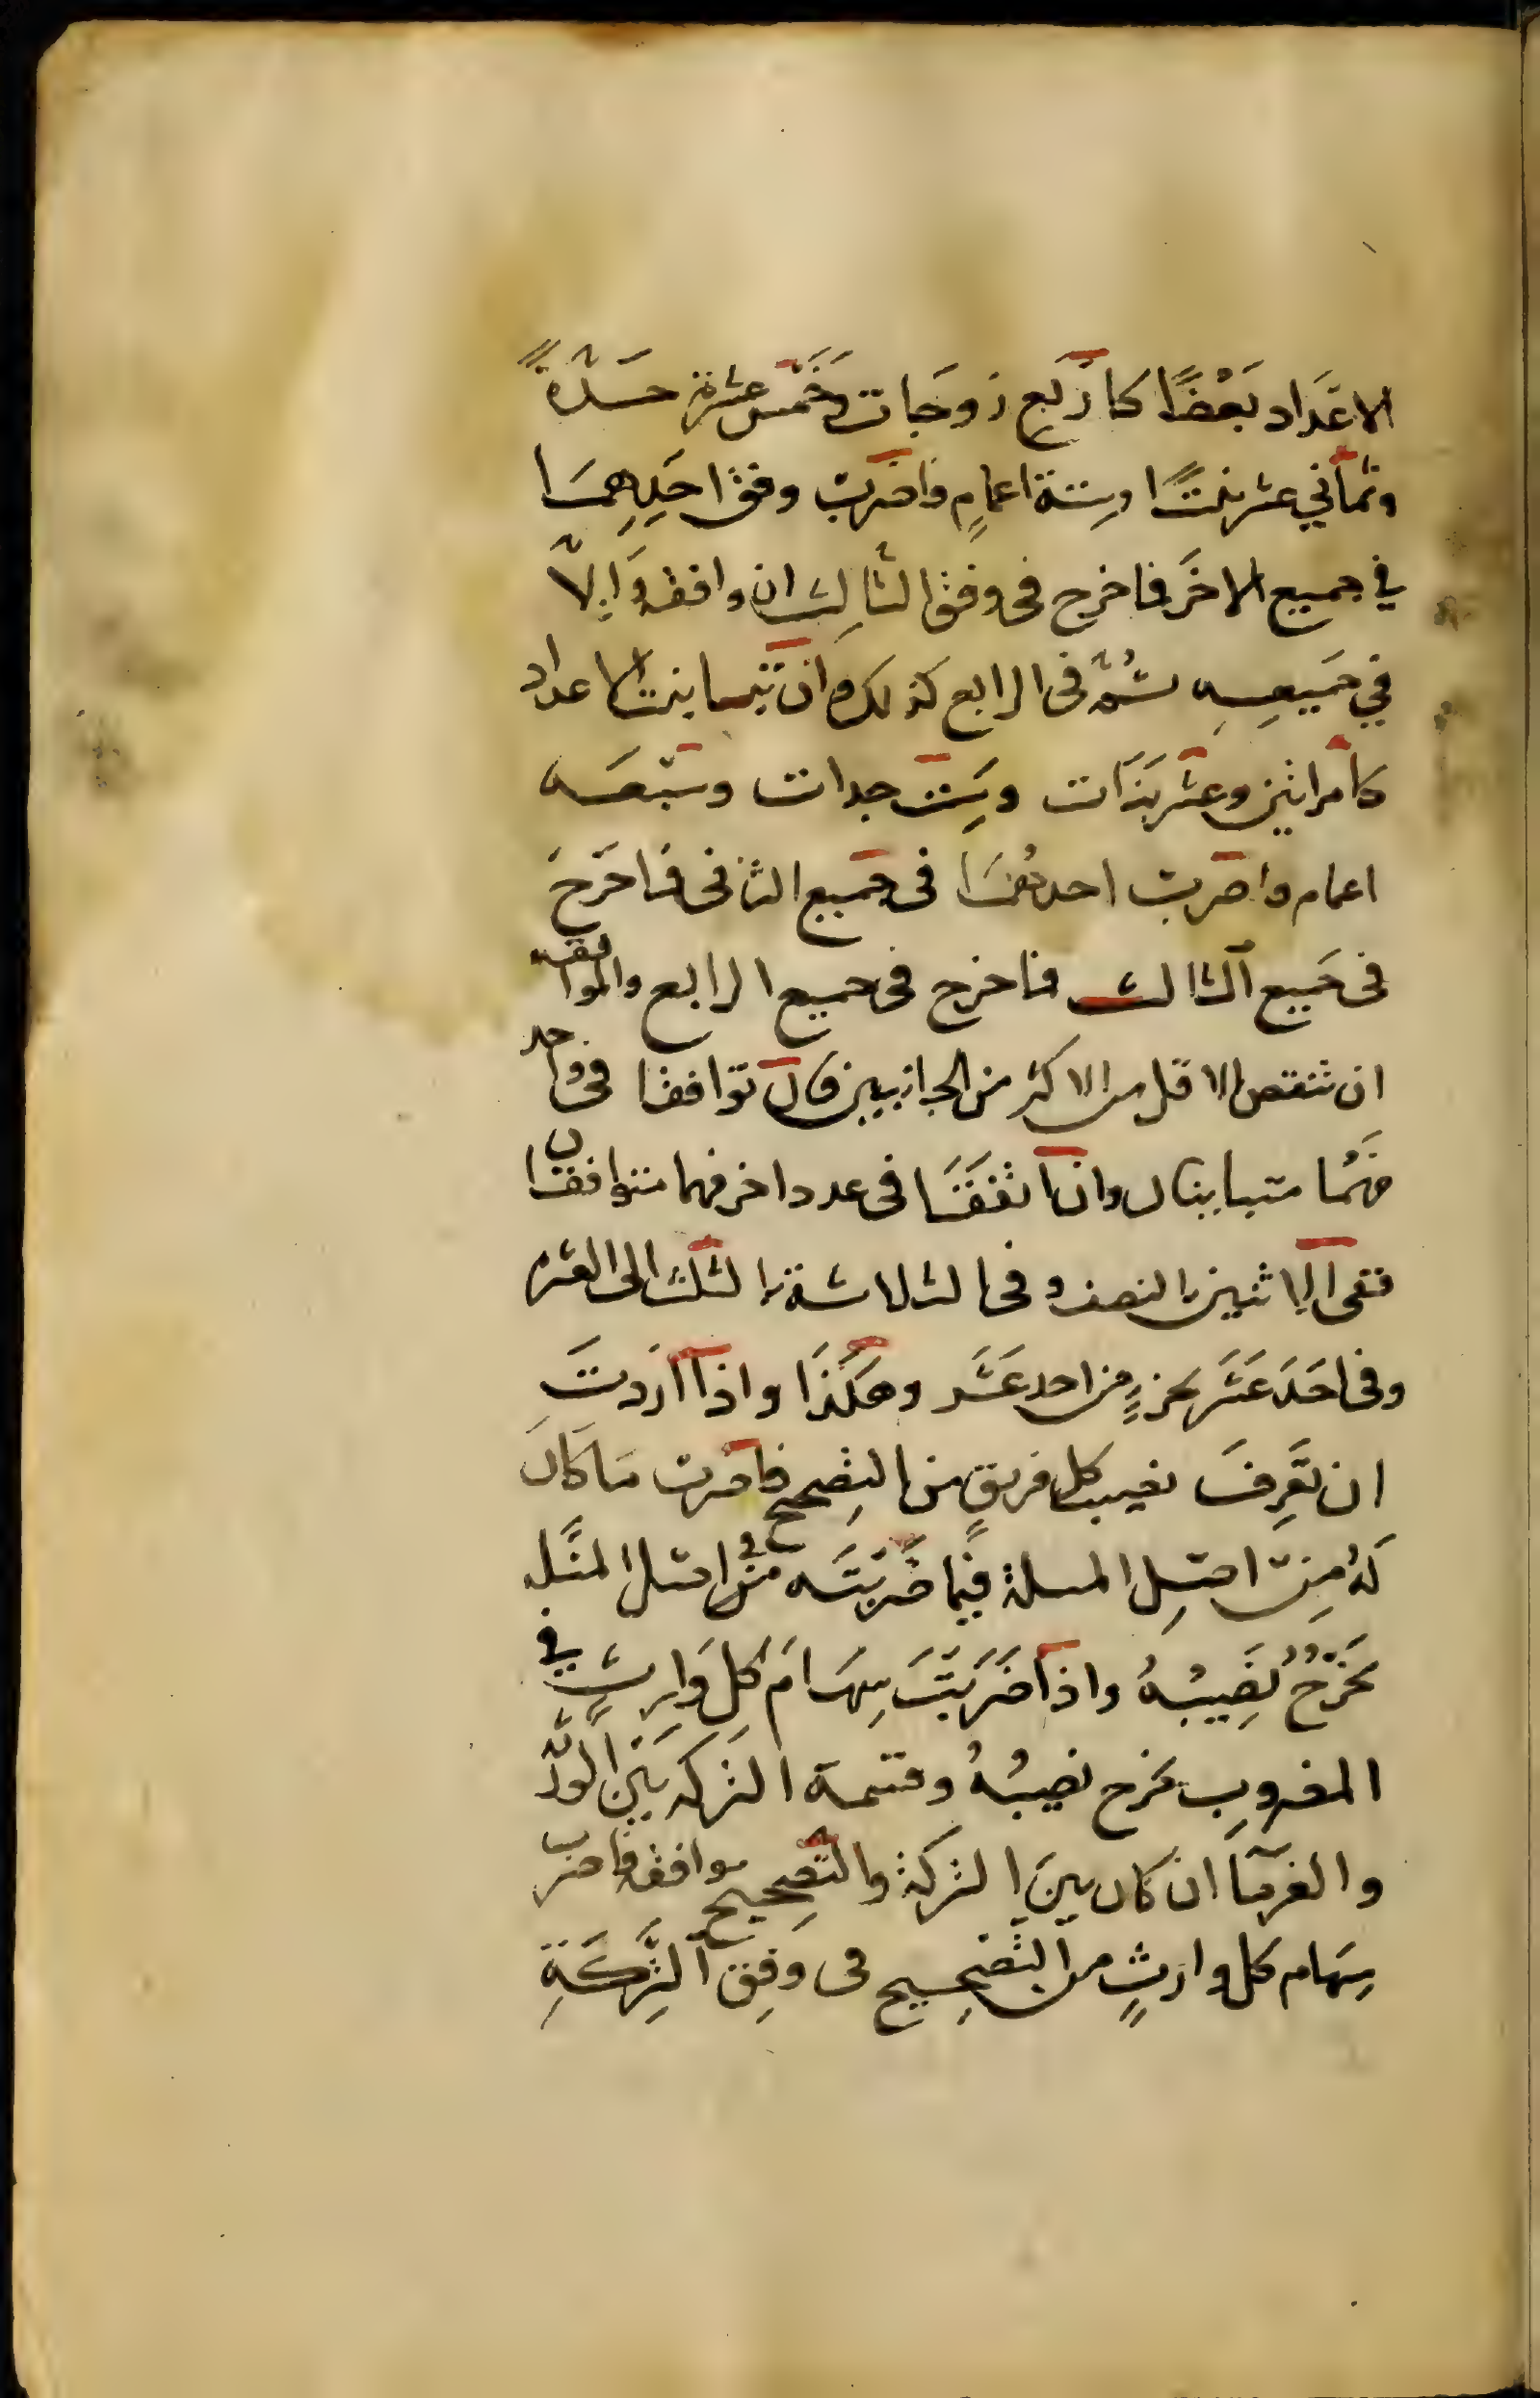 الاعَدَاد بَعْضًا كاَرْبَعِ زَوجَات وَخَمْس عشرة جَدّةً
وثماني عشر بنتًا وستة اعمامٍ فاضرب وفق احَدِهِمَا
في جميع الاخَر فما خرج فى وفق الثالِث ان وافقه وَاِلاّ
في جَميعِه ثُمّ فى الرابع كذلك وان تَبَاينت الاعداد
كامراتين وعَشر بَنَات وسِت جدات وسَبعَه
اعمام فاضرب احدهُمَا فى جَميع الثانى فما خَرَجَ
فى جَميع الثالث فما خرج فى جميع الرابع والموافقه
ان تنقص الاقل من الاكثر من الجانبين فان توافقا فى واحد
فهُمَا متباينان وان اتفَقَا فى عدد اخر فهما متوافقان
ففى الاثنين بالنصف وفى الثلاثة بالثلث الى العشره
وفى احَدَ عَشَر بجزءٍ من احد عَشَر وهكَذَا واذا اَرَدتَ
ان تَعرِفَ نصيب كل فريقٍ من التصِحيح فاضرب مَا كَانَ
لَهُ مِن اصلِ المسلة فيما ضَرَبتَه فى اصل المسَله
يَخرُجُ نَصِيبُهُ واذا ضَرَبتَ سِهَامَ كل وَارِثٍ في
المضروبِ يخرج نصيبُهُ وقسمة التركه بَيْنَ الورَثه
والغرمَا ان كان بينَ التركة والتصِحِيح موافقه فاضرب
سِهَام كل وارثٍ من التصحِيح فى وَفِق التَّرِكَةِ